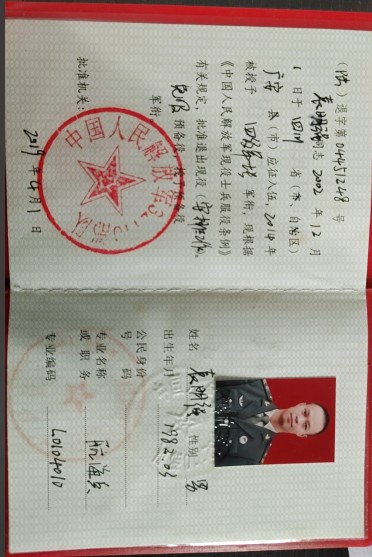 (陆) 退字第 04451248 号
袁明强同志 2002 年 12 月
1 日于 四川 省（市、自治区）
广安 县（市）应征入伍，2014 年
被授予 四级军士长 军衔，现根据
《中国人民解放军现役士兵服役条例》
有关规定，批准退出现役（安排工作），
预备役
军衔
批准机关：
2019 年 4 月 1 日
中国人民解放军
部队
姓名 袁明强 性别 男
出生年月 1982.03
公民身份
号码
专业名称
或职务 航海兵
专业编码 40104010